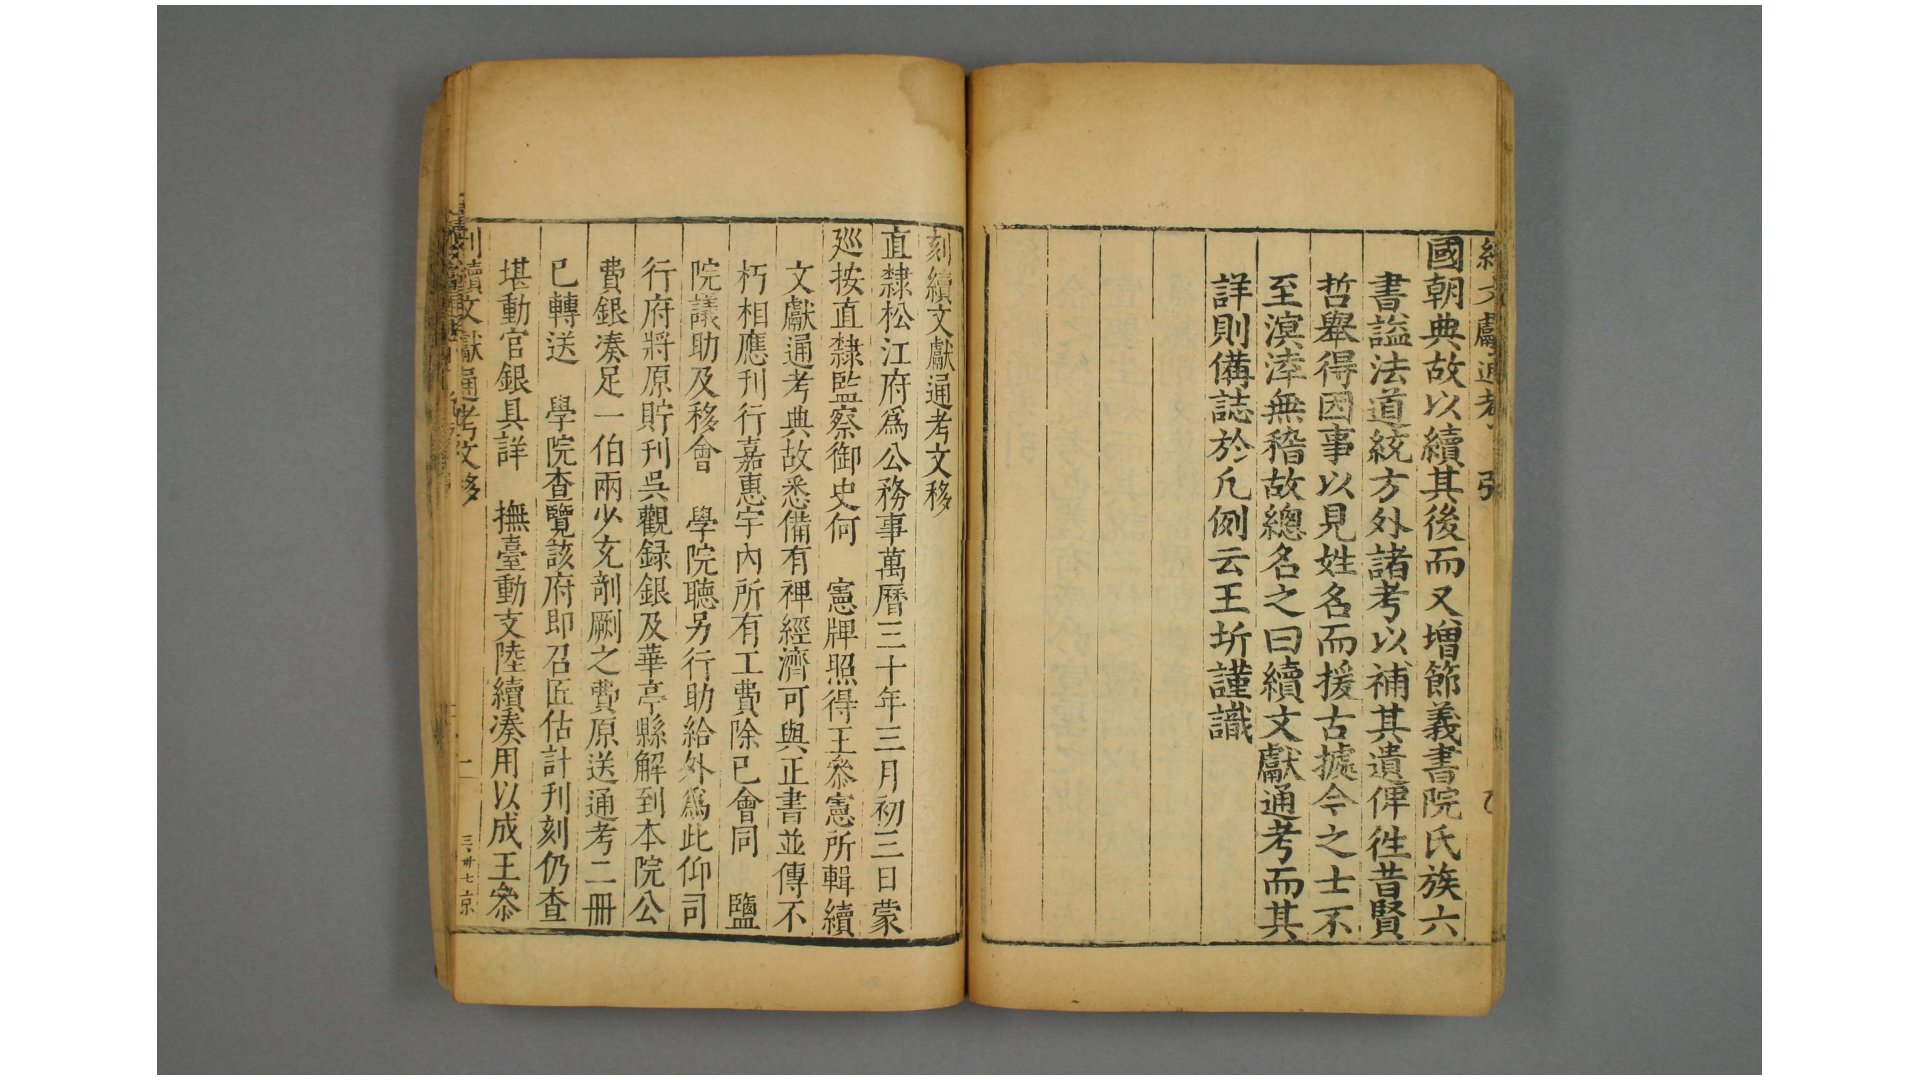 國朝典故以續其後而又增節義書院氏族六
書謚法道統方外諸考以補其遺俾徃昔賢
哲舉得因事以見姓名而援古據今之士不
至溟涬無稽故總名之曰續文獻通考而其
詳則備誌於凡例云王圻謹識
刻續文獻通考文移
直隸松江府爲公務事萬曆三十年三月初三日蒙
廵按直隸監察御史何 憲牌照得王叅憲所輯續
文獻通考典故悉備有裨經濟可與正書並傳不
朽相應刊行嘉惠宇內所有工費除已會同 鹽
院議助及移會 學院聽另行助給外爲此仰司
行府將原貯刊吳觀録銀及華亭縣解到本院公
費銀凑足一伯兩少充剞劂之費原送通考二冊
已轉送 學院查覽該府即召匠估計刊刻仍查
堪動官銀具詳 撫臺動支陸續凑用以成王叅
續文獻通考文移